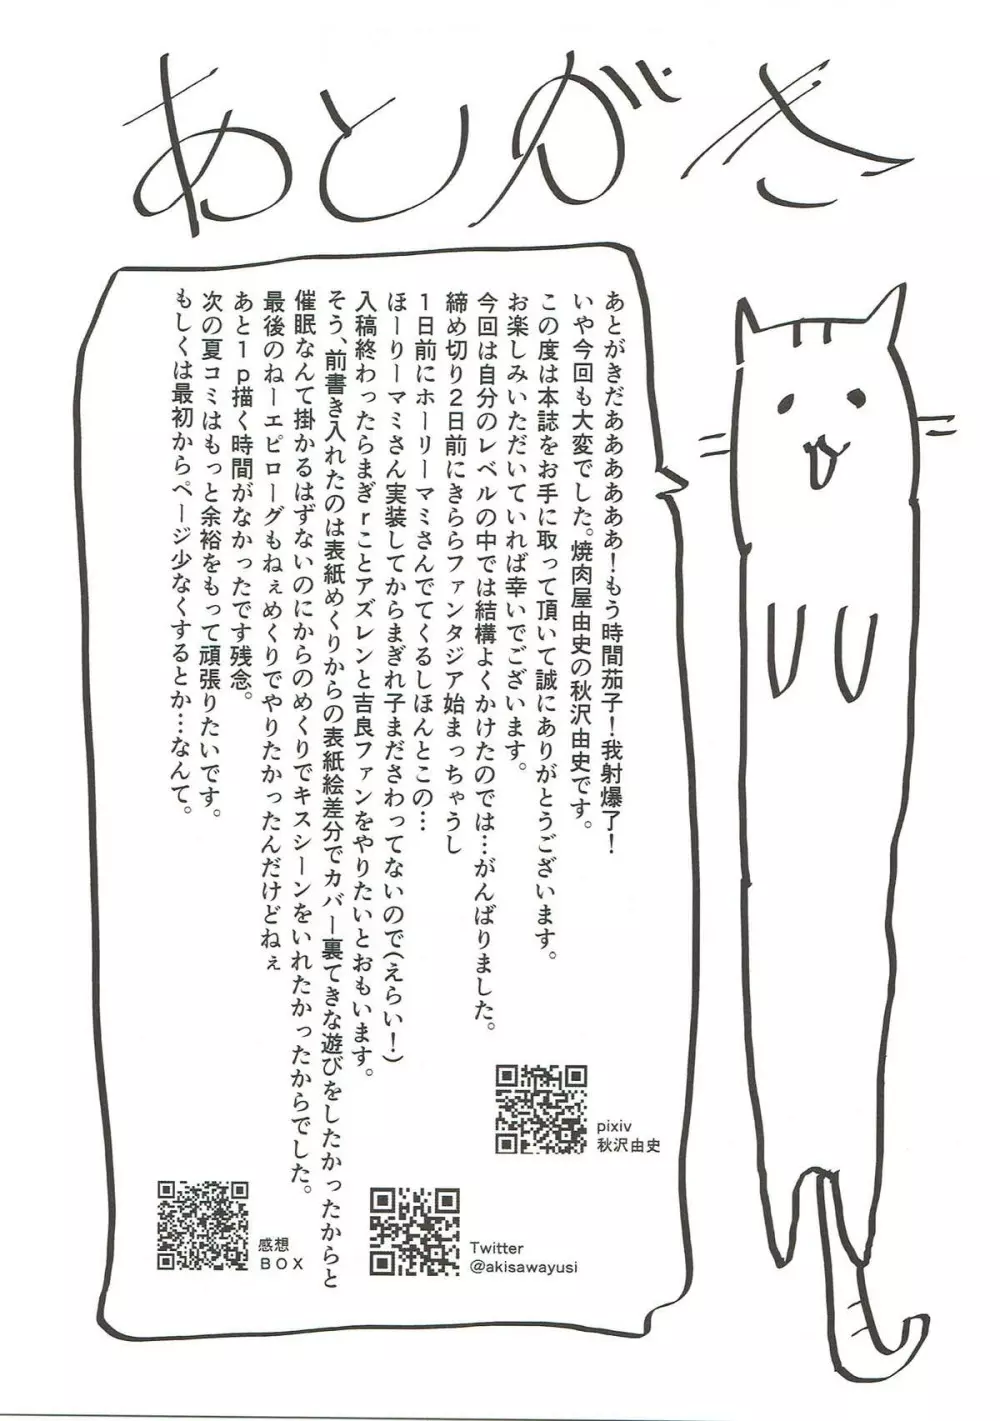 あとがき
あとがきだあああああああ！もう時間茄子！我射爆了！
いや今回も大変でした。焼肉屋由史の秋沢由史です。
この度は本誌をお手に取って頂いて誠にありがとうございます。
お楽しみいただいていれば幸いでございます。
今回は自分のレベルの中では結構よくかけたのでは…がんばりました。
締め切り２日前にきららファンタジア始まっちゃうし
１日前にホーリーマミさんでてくるしほんとこの…
ほーりーマミさん実装してからまぎれ子まださわってないので(えらい！)
入稿終わったらまぎrことアズレンと吉良ファンをやりたいとおもいます。
そう、前書き入れたのは表紙めくりからの表紙絵差分でカバー裏てきな遊びをしたかったからと
催眠なんて掛かるはずないのにからのめくりでキスシーンをいれたかったからでした。
最後のねーエピローグもねぇめくりでやりたかったんだけどねぇ
あと１ｐ描く時間がなかったです残念。
次の夏コミはもっと余裕をもって頑張りたいです。
もしくは最初からページ少なくするとか…なんて。
pixiv
秋沢由史
Twitter
@akisawayusi
感想
ＢＯＸ